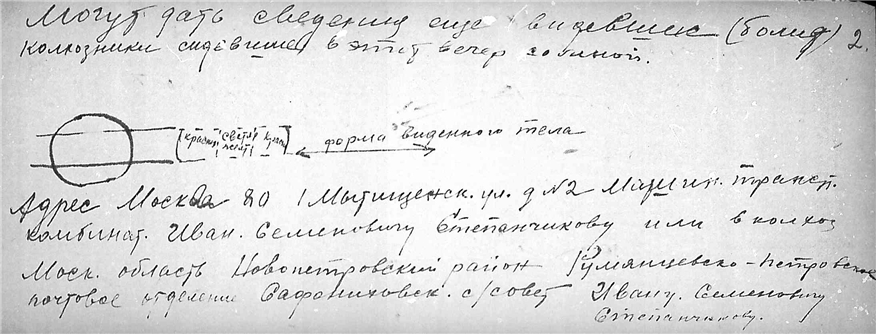 Могут дать сведения еще видевших (болид) 2.
колхозники сидевшие в этот вечер со мной.
красн светл красн форма виденного тела
желт
Адрес Москва 80 1 Мытищенск. ул. д №2 Машин. трансп.
комбинат. Иван. Семеновичу Степанчикову или в колхоз
Моск. область Новопетровский район Румянцевско-Петровское
почтовое отделение Сафониховск. с/совет Ивану. Семеновичу
Степанчикову.